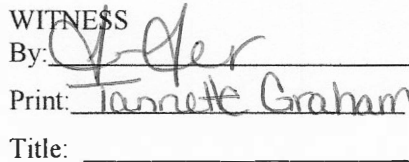 WITNESS
By:
Print: Tannette Graham
Title: